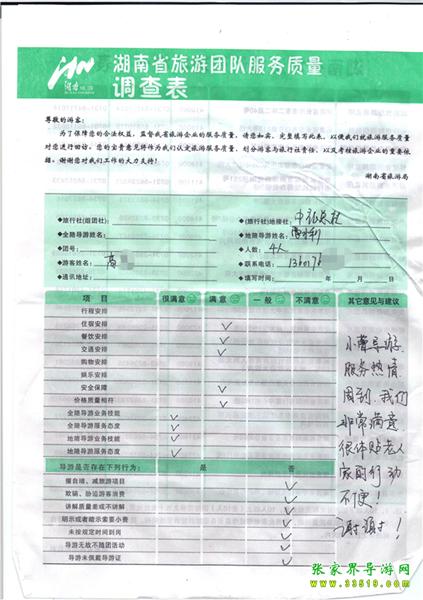 湖南省旅游团队服务质量
调查表
尊敬的游客:
为了保障您的合法权益,监督我省旅游企业的服务质量,请您如实、完整填写此表,以便我们就旅游服务质量
对您进行回访。您的宝贵意见将作为我们认定旅游服务质量、划分游客与旅行社责任、以及考核旅游企业的重要依
据。谢谢您对我们工作的大力支持!
湖南省旅游局
◆旅行社(组团社):
◆(旅行社)地接社:
◆全陪导游姓名:
◆地陪导游姓名:
◆团号:
◆人数: 4人
◆游客姓名:
◆联系电话:
◆通讯地址:
◆填写时间: 年 月 日
项 目 很满意 满 意 一 般 不满意 其它意见与建议
行程安排
住宿安排 ✓
餐饮安排 ✓
交通安排 ✓
购物安排
娱乐安排
安全保障 ✓
价格质量相符 ✓
全陪导游业务技能 ✓
全陪导游服务态度 ✓
地陪导游业务技能 ✓
地陪导游服务态度 ✓
导游是否存在下列行为: 是 否
擅自增、减旅游项目 ✓
欺骗、胁迫游客消费 ✓
讲解质量差或不讲解 ✓
明示或者暗示索要小费 ✓
未按规定时间到岗 ✓
导游无故不随团活动 ✓
导游未佩戴导游证 ✓
小曹导游
服务热情
周到.我们
非常满意
很体贴老人
家因行动
不便!
谢谢!
张家界导游网
www.33519.com